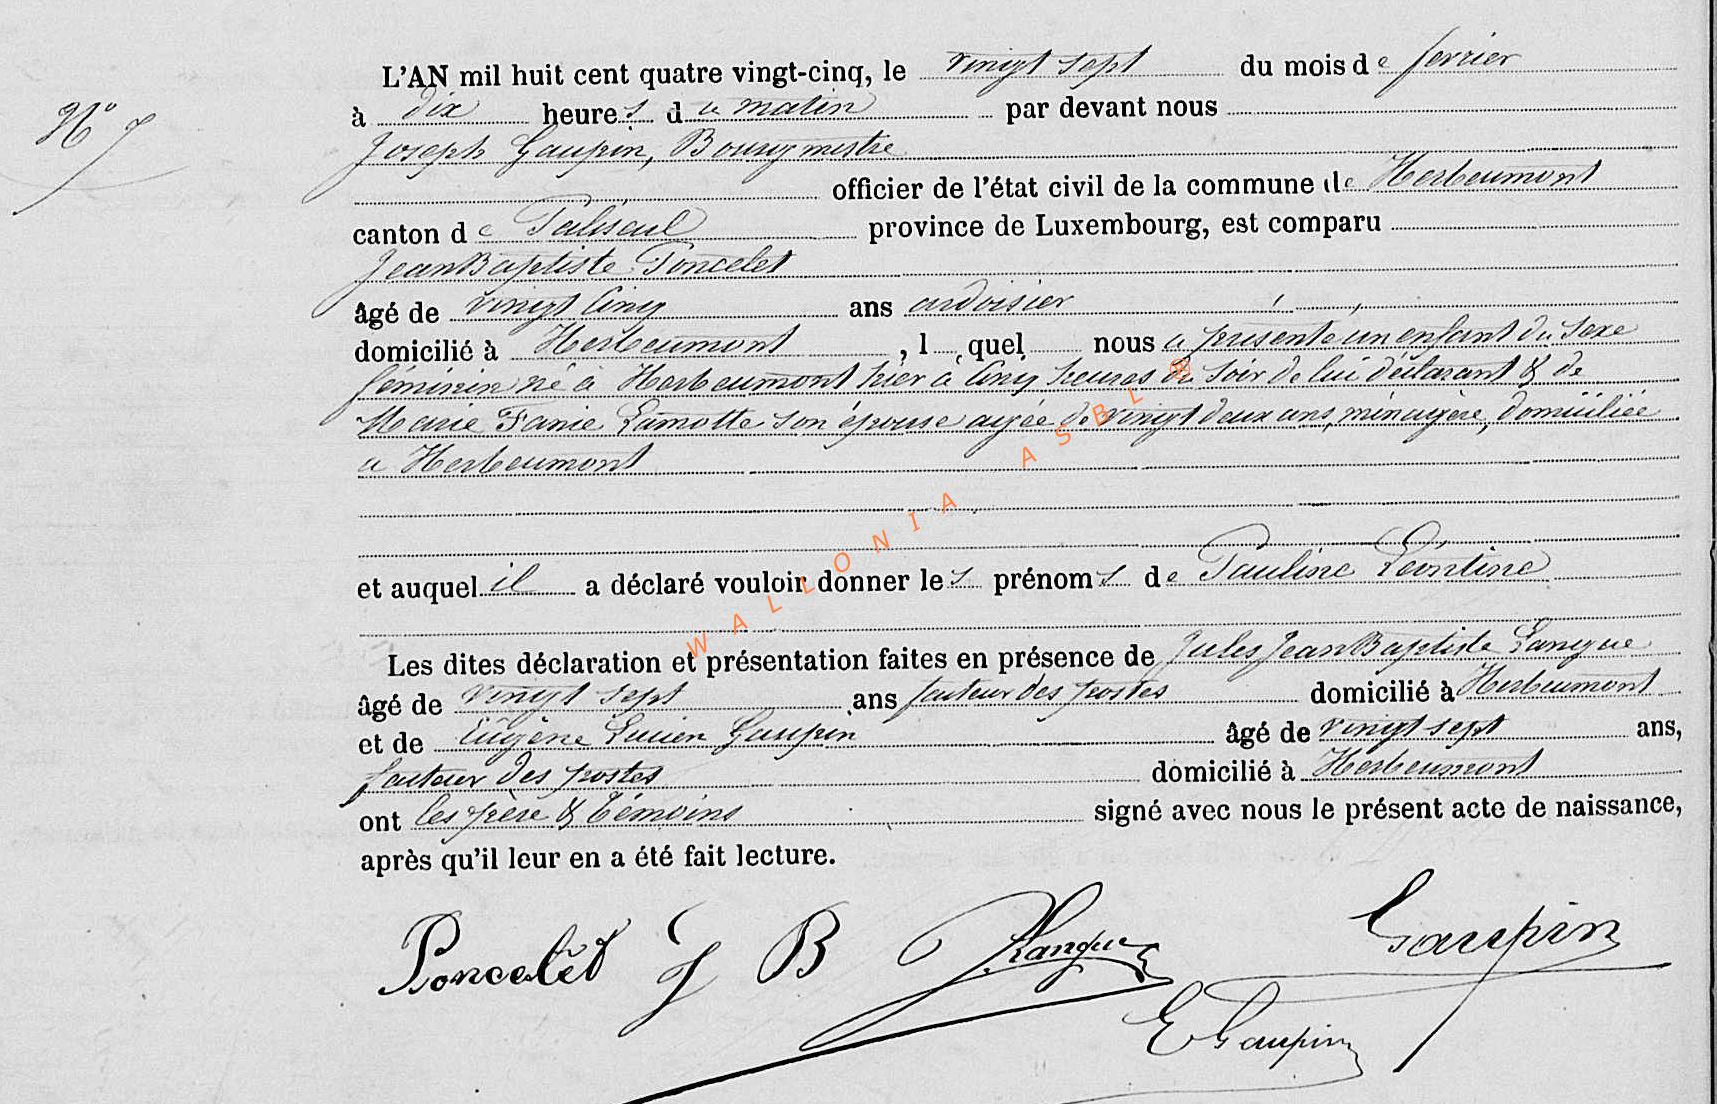 L'AN mil huit cent quatre vingt-cinq, le vingt sept du mois de fevrier
N° 7
à dix heures du matin par devant nous
Joseph Gaupin, Bourgmestre
officier de l'état civil de la commune de Herbeumont
canton de Paliseul province de Luxembourg, est comparu
Jean Baptiste Poncelet
âgé de vingt cinq ans ardoisier
domicilié à Herbeumont, lequel nous a présenté un enfant du sexe
féminin né à Herbeumont hier à cinq heures du soir de lui déclarant & de
Marie Fanie Lamotte son épouse agée de vingt deux ans, ménagère, domiciliée
a Herbeumont
et auquel il a déclaré vouloir donner les prénoms de Pauline Léontine
Les dites déclaration et présentation faites en présence de Jules Jean Baptiste Langue
âgé de vingt sept ans facteur des postes domicilié à Herbeumont
et de Eugène Lucien Gaupin âgé de vingt sept ans,
facteur des postes domicilié à Herbeumont
ont les père & témoins signé avec nous le présent acte de naissance,
après qu'il leur en a été fait lecture.
Poncelet J B JLangue Gaupin
E Gaupin
WALLONIA ASBL ®